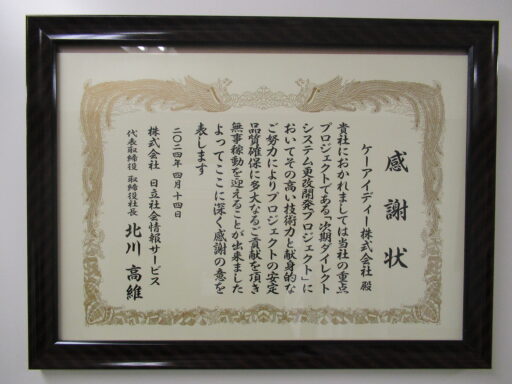 感謝状
ケーアイディー株式会社 殿
貴社におかれましては当社の重点
プロジェクトである「次期ダイレクト
システム更改開発プロジェクト」に
おいてその高い技術力と献身的な
ご努力によりプロジェクトの安定
品質確保に多大なるご貢献を頂き
無事稼動を迎えることが出来ました
よってここに深く感謝の意を
表します
二〇二四年 四月 十四日
株式会社 日立社会情報サービス
代表取締役 取締役社長 北川 高維